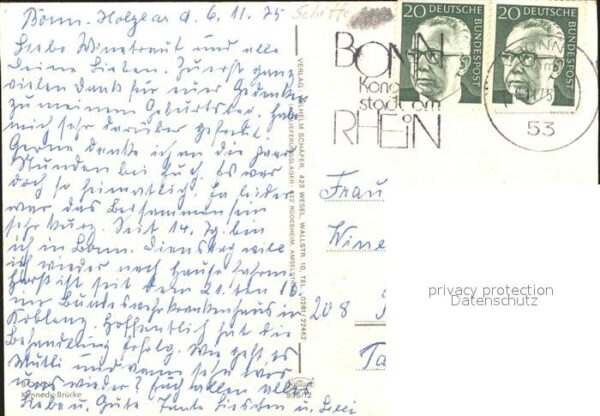 Bonn-Holzlar d. 6.11.75
Liebe Winetraut und alle
Deine Lieben. Zuerst ganz
vielen Dank für euer Gedenken
zu meinem Geburtstag. Habe
mich sehr darüber gefreut.
Gerne denke ich an die paar
Stunden bei Euch. Es war
doch so heimatlich. Ja leider
war das Beisammensein
sehr kurz. Seit 14 Tg. bin
ich in Bonn. Dienstag will
ich wieder nach Hause fahren.
ist seit dem 21. ten 10
im Bundeswehrkrankenhaus in
Koblenz. Hoffentlich hat die
Behandlung Erfolg. Wie geht es
Mutti und wann seht Ihr
uns wieder? Euch allen alles
Liebe u. Gute Tante Lieschen u.
Kennedy-Brücke
Schiffe
VERLAG WILHELM SCHÄFER, 423 WESEL, WALLSTR. 10, TEL. 0281/22462
AUSLIEFERUNGSLAGER: 622 RÜDESHEIM, AMSELSTR.
936/12
BONN
Kongreß
stadt am
RHEIN
20 DEUTSCHE BUNDESPOST
20 DEUTSCHE BUNDESPOST
BONN
53
Frau
Wine
208
Ta
privacy protection
Datenschutz